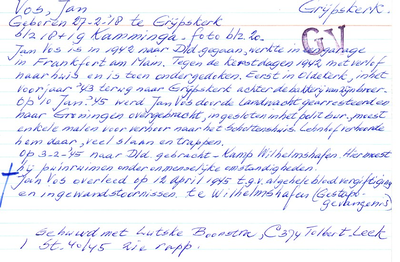 Vos, Jan Grijpskerk.
Geboren 27-2-'18 te Grijpskerk
blz 18+19 Kamminga - foto blz. 20
GV
Jan Vos is in 1942 naar Dld. gegaan, werkte in garage
in Frankfort am Main. Tegen de kerstdagen 1942 met verlof
naar huis en is toen ondergedoken. Eerst in Oldekerk, in het
voorjaar '43 terug naar Grijpskerk achter de bakkerij van zijn broer.
Op 10 Jan. '45 werd Jan Vos door de Landwacht gearresteerd en
naar Groningen overgebracht, ingesloten in het politbur, moest
enkele malen voor verhoor naar het Scholtenshuis. Lehnhof verhoorde
hem daar, veel slaan en trappen.
Op 3-2-'45 naar Dld. gebracht - Kamp Wilhelmshafen. Hier moest
hij puinruimen onder onmenselijke omstandigheden.
Jan Vos overleed op 12 April 1945 t.g.v. algehele bloedvergiftiging
en ingewandstoornissen. te Wilhelmshafen (Gestapo
gevangenis)
Gehuwd met Lutske Boonstra, (C374 Tolbert, Leek
St. 40/45 zie rapp.